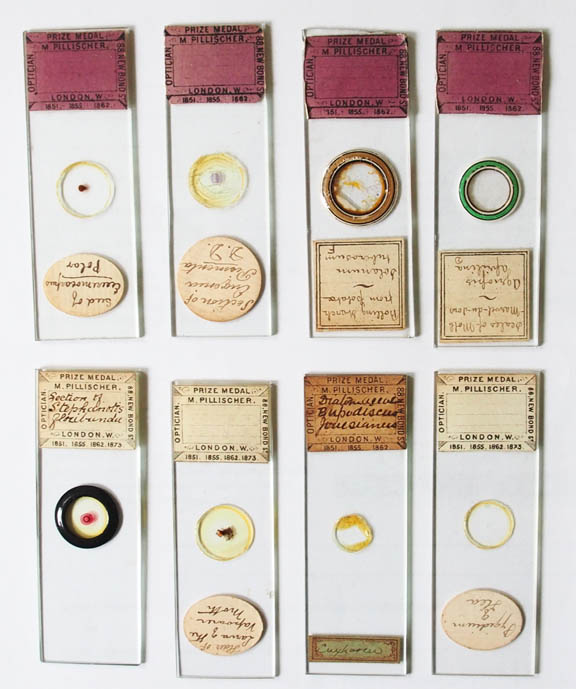 PRIZE MEDAL
M. PILLISCHER.
OPTICIAN.
88, NEW BOND ST
LONDON, W.
1851. 1855. 1862.
Seed of
Polar
PRIZE MEDAL
M. PILLISCHER.
OPTICIAN.
88, NEW BOND ST
LONDON, W.
1851. 1855. 1862.
Section of
Eugenia
Pimenta
PRIZE MEDAL
M. PILLISCHER.
OPTICIAN.
88, NEW BOND ST
LONDON, W.
1851. 1855. 1862.
Rotting starch
from potato
~
Solanum
tuberosum
PRIZE MEDAL
M. PILLISCHER.
OPTICIAN.
88, NEW BOND ST
LONDON, W.
1851. 1855. 1862.
Scales of Moth
~
PRIZE MEDAL
M. PILLISCHER.
OPTICIAN.
88, NEW BOND ST
Section of
Stephanotis
floribunda
LONDON, W.
1851. 1855. 1862. 1873.
PRIZE MEDAL
M. PILLISCHER.
OPTICIAN.
88, NEW BOND ST
LONDON, W.
1851. 1855. 1862. 1873.
Hair of
Larva of the
Vapourer
Moth
PRIZE MEDAL
M. PILLISCHER.
OPTICIAN.
88, NEW BOND ST
Eupodiscus
LONDON, W.
1851. 1855. 1862. 1873.
PRIZE MEDAL
M. PILLISCHER.
OPTICIAN.
88, NEW BOND ST
LONDON, W.
1851. 1855. 1862. 1873.
Pygidium
of
Flea